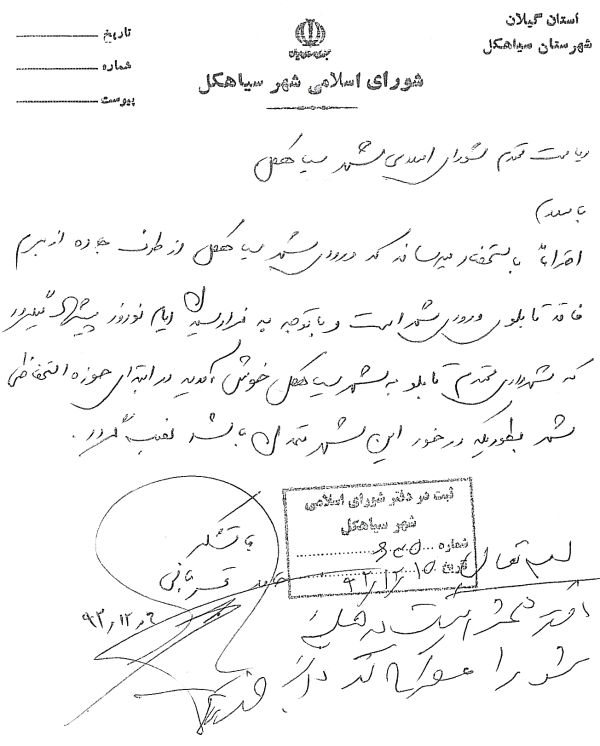 استان گیلان
شهرستان سیاهکل
تاریخ
شماره
پیوست
شورای اسلامی شهر سیاهکل
ریاست محترم شورای اسلامی شهر سیاهکل
با سلام
احتراماً باستحضار میرساند که ورودی شهر سیاهکل از طرف جاده ازبرم
فاقد تابلوی ورودی شهر است و با توجه به فرارسیدن ایام نوروز پیشنهاد میگردد
که شهرداری محترم تابلو به شهر سیاهکل خوش آمدید در ابتدای حوزه استحفاظی
شهر بطوریکه در خور این شهر متمدن باشد نصب گردد.
با تشکر
۹۳/۱۲/۹
ثبت در دفتر شورای اسلامی
شهر سیاهکل
شماره
تاریخ ۹۳/۱۲/۱۵
بسمه تعالی
شورا